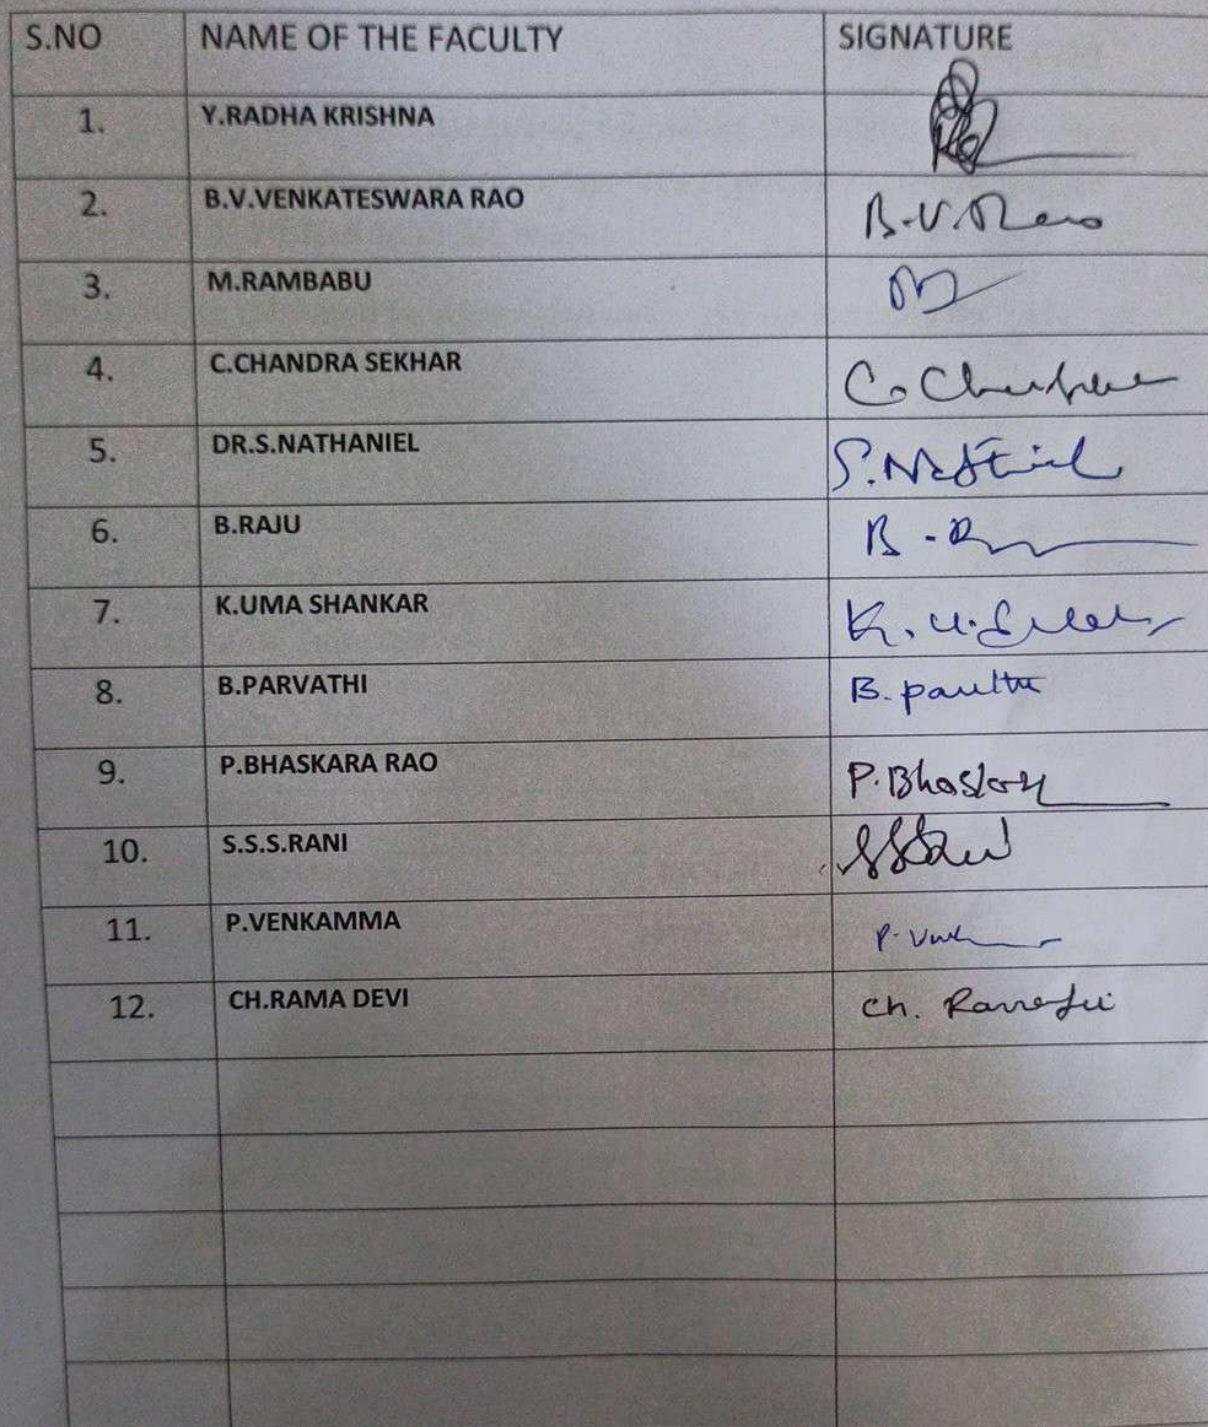 S.NO NAME OF THE FACULTY SIGNATURE
1. Y.RADHA KRISHNA
2. B.V.VENKATESWARA RAO B.V.Rao
3. M.RAMBABU
4. C.CHANDRA SEKHAR
5. DR.S.NATHANIEL
6. B.RAJU
7. K.UMA SHANKAR
8. B.PARVATHI
9. P.BHASKARA RAO P.Bhaskar
10. S.S.S.RANI
11. P.VENKAMMA
12. CH.RAMA DEVI